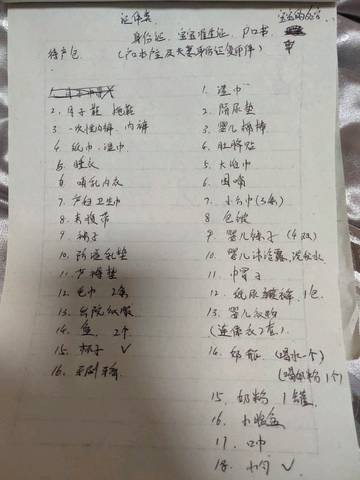 证件类
身份证 宝宝准生证 户口本
待产包
2. 月子鞋 拖鞋
3. 一次性内裤 内裤
4. 纸巾 湿巾
5. 睡衣
6. 哺乳内衣
7. 产妇卫生巾
8. 束腹带
9. 袜子
10. 防溢乳垫
11. 产褥垫
12. 毛巾 2条
13. 出院衣服
14. 盆 2个
15. 杯子 ✓
16. 牙刷牙膏
1. 湿巾
2. 隔尿垫
3. 婴儿棉棒
4. 肚脐贴
5. 大浴巾
6. 围嘴
7. 小方巾(3条)
8. 包被
9. 婴儿袜子(4双)
10. 婴儿沐浴露、洗发水
11. 巾 帽子
12. 纸尿裤 1包
13. 婴儿衣物
(连体衣2套)
14. 奶瓶 (喝水一个)
(喝奶粉1个)
15. 奶粉 1罐
16. 小脸盆
17. 口巾
18. 小勺 ✓